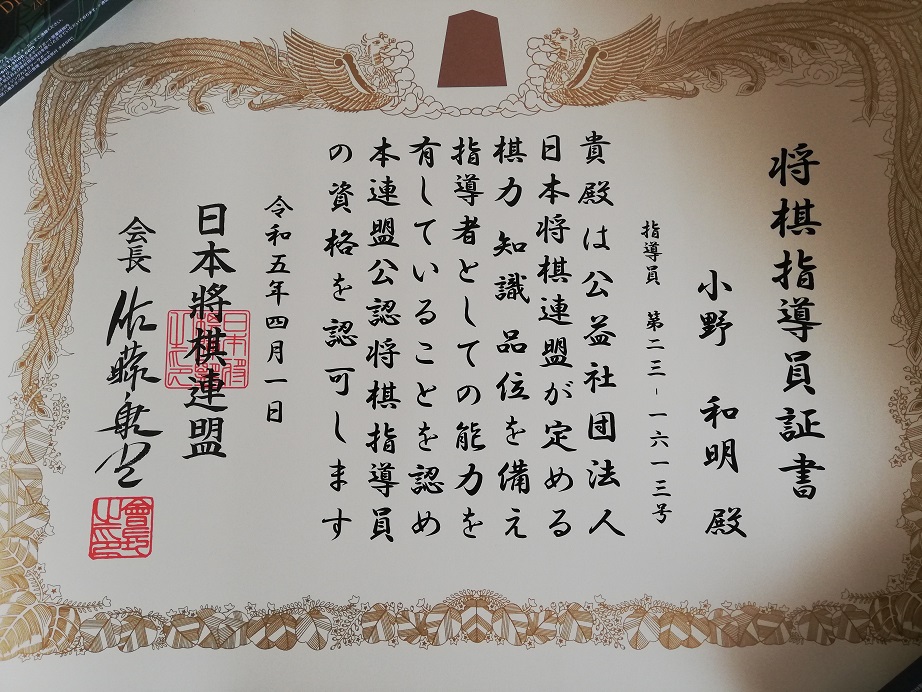 将棋指導員証書
小野 和明 殿
指導員 第二三-一六一三号
貴殿は公益社団法人
日本将棋連盟が定める
棋力知識品位を備え
指導者としての能力を
有していることを認め
本連盟公認将棋指導員
の資格を認可します
令和五年四月一日
日本將棋連盟
会長 佐藤康光
會長之印